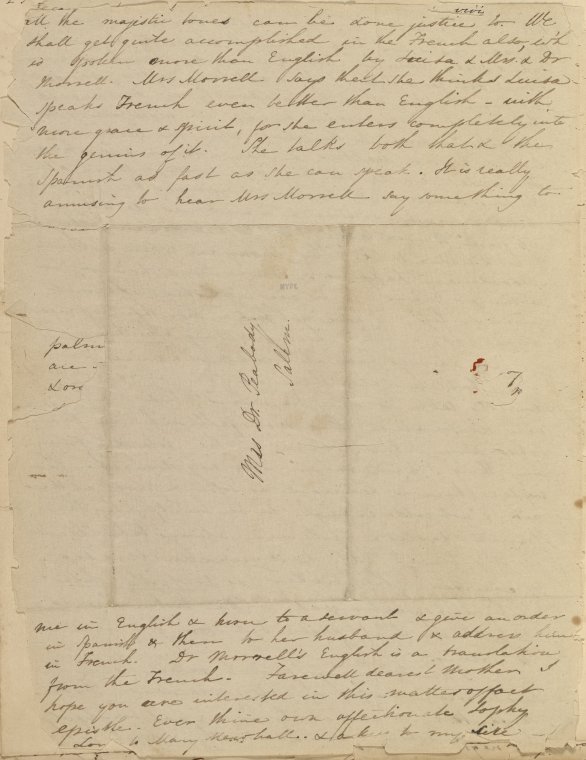 all the majestic tones can be done justice to. We
shall get quite accomplished in the French also, wh
is spoken more than English by Luisa & Mrs. & Dr
Morrell. Mrs Morrell says that she thinks Luisa
speaks French even better than English - with
more grace & spirit, for she enters completely into
the genius of it. She talks both that & the
Spanish as fast as she can speak. It is really
amusing to hear Mrs Morrell say something to
palm
are -
& love
Mrs Dr. Peabody.
Salem.
me in English & turn to a servant & give an order
in Spanish & then to her husband & address him
in French. Dr Morrell's English is a translation
from the French. Farewell dearest Mother I
hope you are interested in this matter of fact
epistle. Ever thine own affectionate Sophy
Love to Mary Newhall. & a kiss to my sire